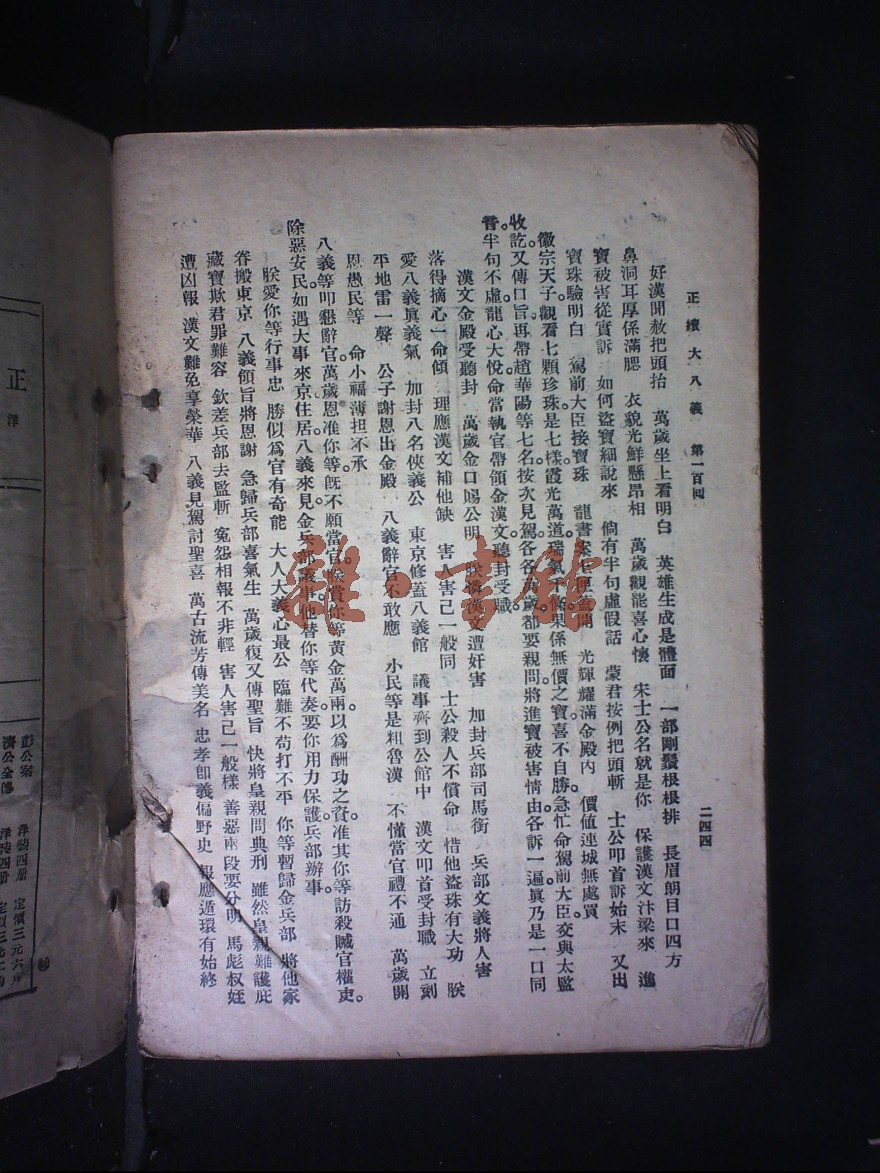 正續大八義　第一百回　二四四
好漢聞赦把頭抬　萬歲坐上看明白　英雄生成是體面　一部剛鬚根根排　長眉朗目口四方
鼻洞耳厚係滿腮　衣貌光鮮懸昂相　萬歲觀龍喜心懷　宋士公名就是你　保護漢文汴梁來　進
寶被害從實訴　如何盜寶細說來　倘有半句虛假話　蒙君按例把頭斬　士公叩首訴始末　又出
寶珠驗明白　駕前大臣接寶珠　龍書案上　光輝耀滿金殿內　價值連城無處買
徽宗天子。觀看七顆珍珠。是七樣霞光萬道。瑞氣千條。果係無價之寶。喜不自勝。急忙命駕前大臣。交與太監
收訖。又傳口旨。再帶趙華陽等七名。按次見駕。各各萬歲都要親問。將進寶被害情由。各訴一遍。眞乃是一口同
音。半句不虛。龍心大悅。命當執官。帶領金漢文。聽封受職。
漢文金殿受聽封　萬歲金口賜公明　朕憐漢文遭奸害　加封兵部司馬銜　兵部文義將人害
落得摘心一命傾　理應漢文補他缺　害人害己一般同　士公殺人不償命　惜他盜珠有大功　朕
愛八義眞義氣　加封八名俠義公　東京修蓋八義館　議事齊到公館中　漢文叩首受封職　立刻
平地雷一聲　公子謝恩出金殿　八義辭官不敢應　小民等是粗魯漢　不懂當官禮不通　萬歲開
恩愚民等　命小福薄担不承
八義等叩懇辭官。萬歲恩准你等。旣不願當官。朕賞你等黃金萬兩。以爲酬功之資。准其你等訪殺贓官權吏。
除惡安民。如遇大事。來京住居。八義來見金兵部議事。他替你等代奏。要你用力保護兵部辦事。
朕愛你等行事忠　勝似爲官有奇能　大人大義心最公　臨難不苟打不平　你等暫歸金兵部　將他家
眷搬東京　八義領旨將恩謝　急歸兵部喜氣生　萬歲復又傳聖旨　快將皇親問典刑　雖然皇親難護庇
藏寶欺君罪難容　欽差兵部去監斬　寃怨相報不非輕　害人害己一般樣　善惡兩段要分明　馬彪叔姪
遭凶報　漢文難免享榮華　八義見駕討聖喜　萬古流芳傳美名　忠孝節義偏野史　報應循環有始終
正
洋
彭公案　洋裝四册　定價三元六
濟公全傳　洋裝四册　定價三元